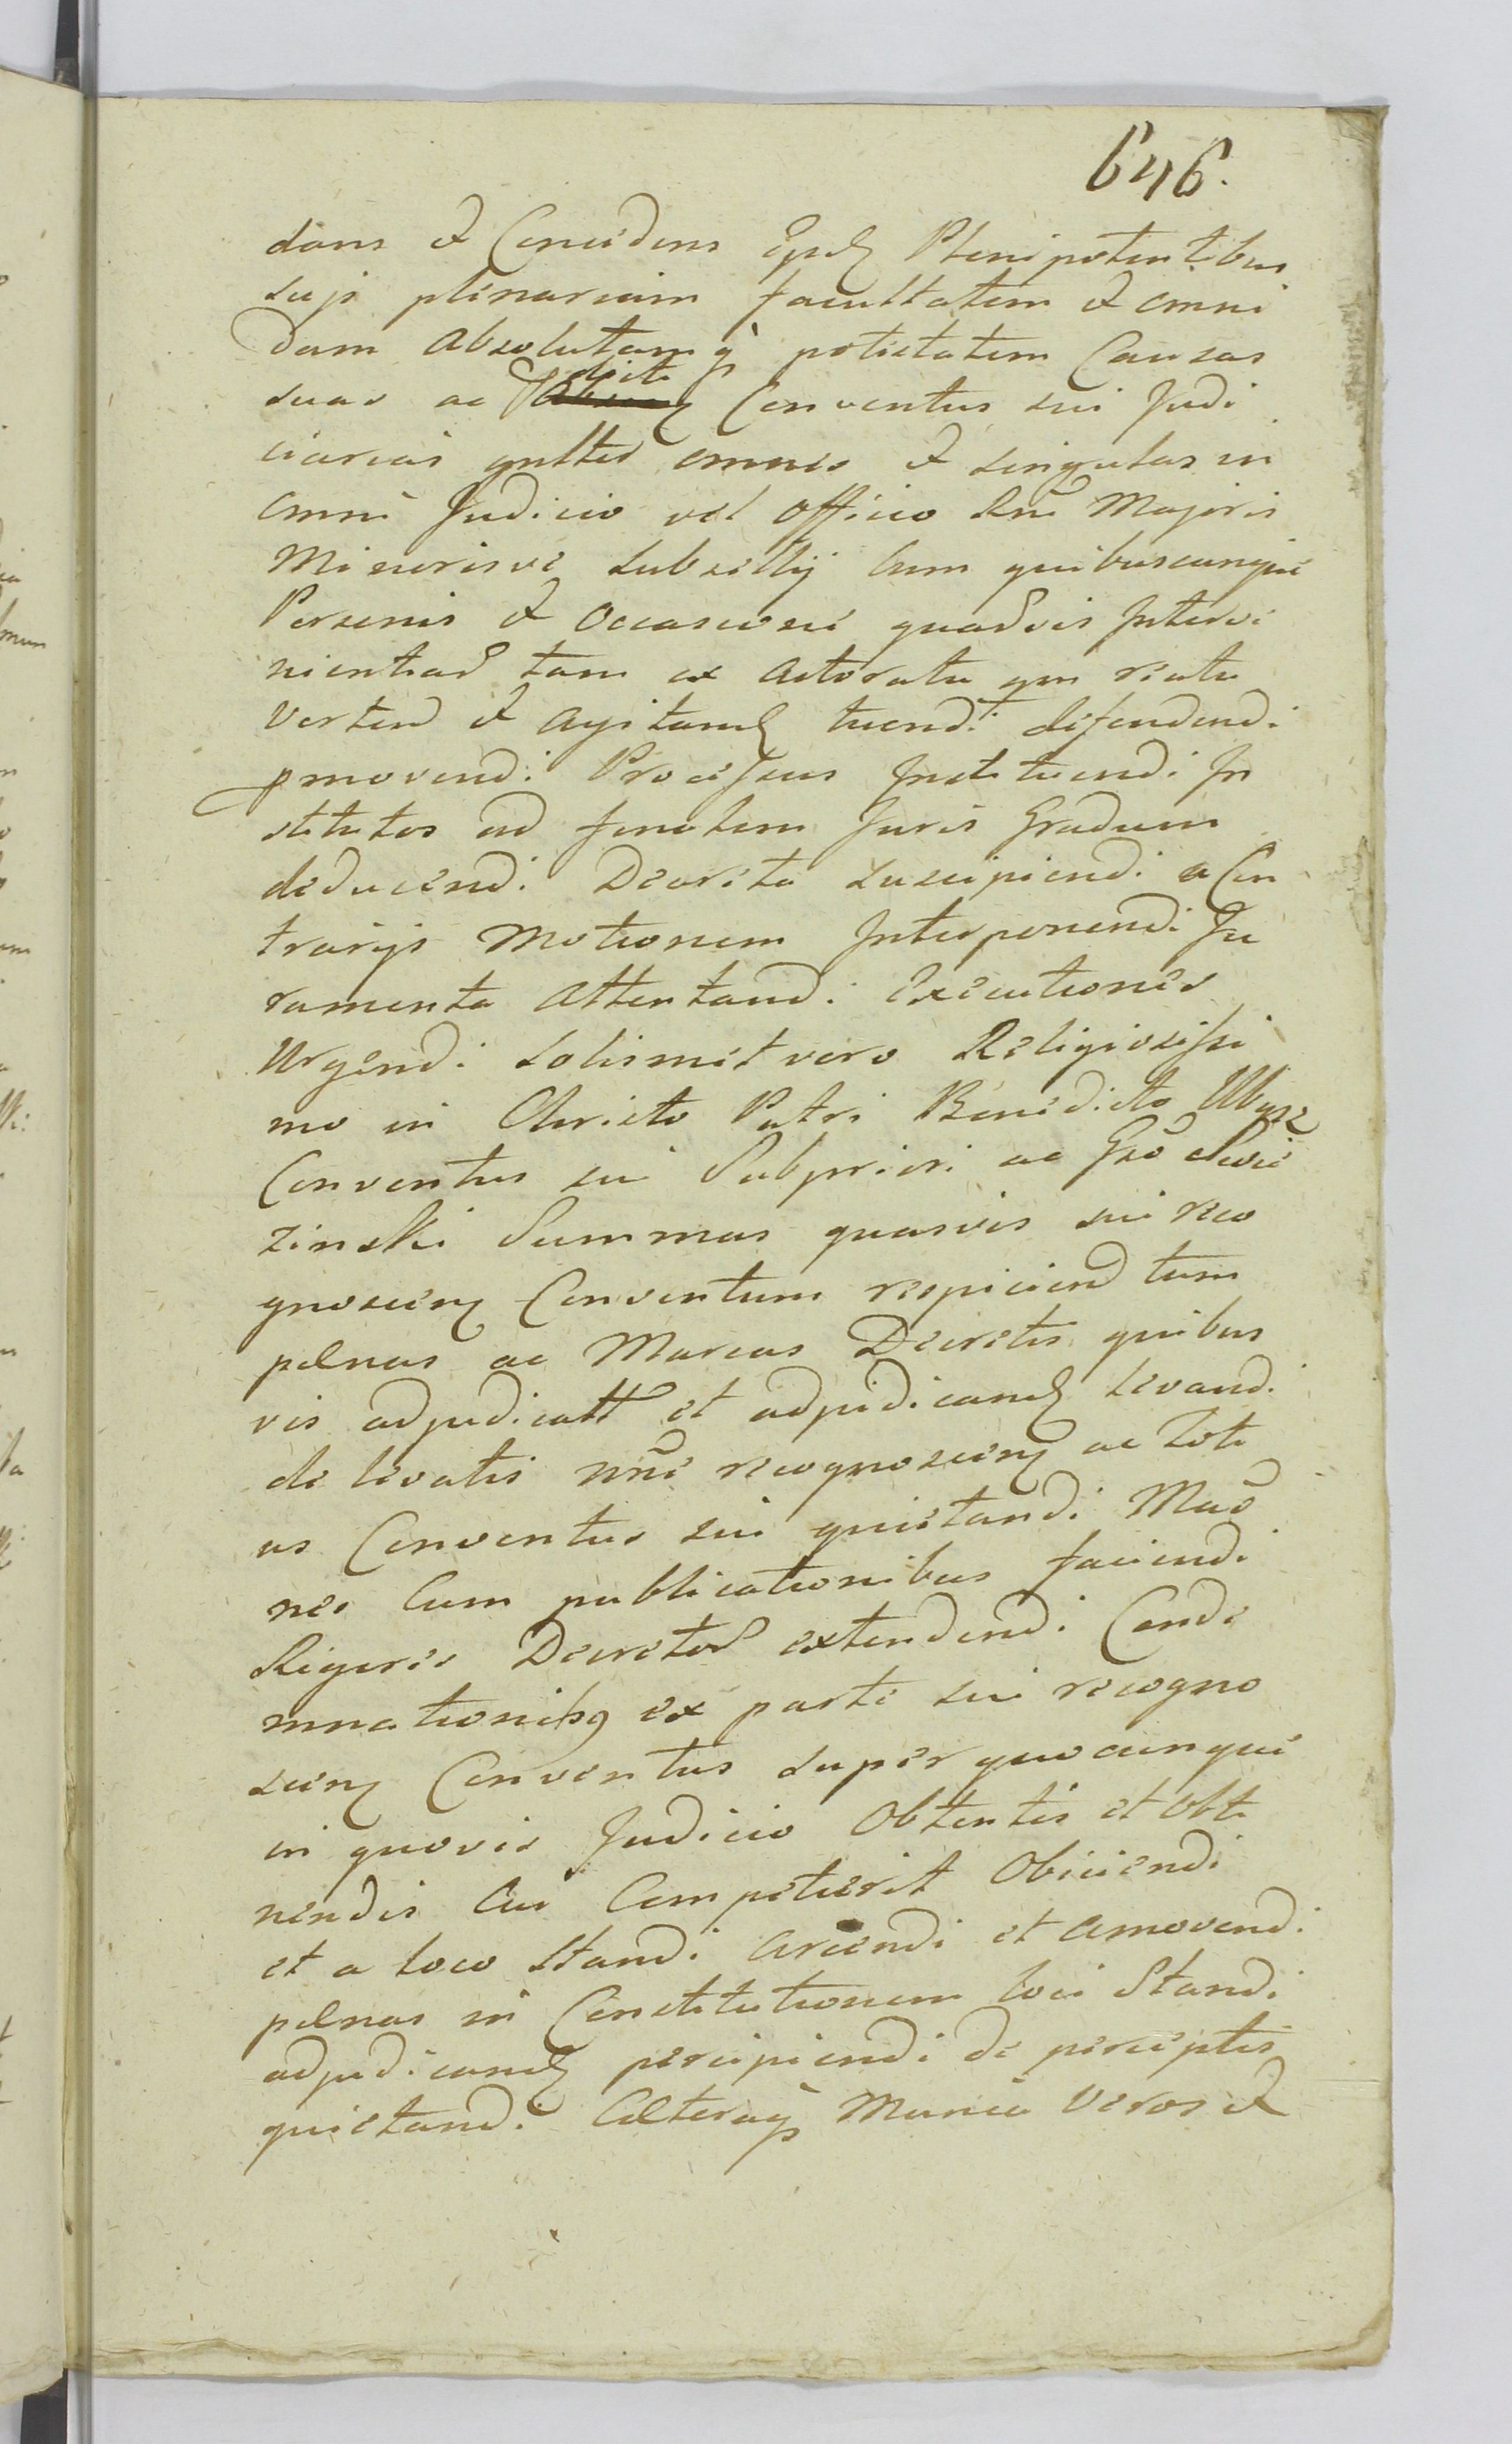 646.
dans & Concedens Plenipotentibus
suis plenariam facultatem & omni
dam Absolutamq potestatem Causas
suas ac Conventus sui Judi
ciarias omnes & singulas in
omni Judicio vel Officio Rni Majoris
Minorisve Subsellij Cum quibuscunque
Personis & Occasione quadvis Interve
nientiad tam ex Actoratu qm reatu
Vertend & Agitand tuendi defendendi
pmovendi Processus Instituendi In
stitutos ad finalem Juris Gradum
deducendi Decreta suscipiendi a Con
trarijs Motionem Interponendi Ju
ramenta Attentandi Executiones
Urgendi Solismet vero Religiosissi
mo in Christo Patri Benedicto
Conventus sui Subpriori ac Gso
zinski Summas quasvis sui reco
gnoscen Conventum respiciend tum
pelnas ac Marcas Decretis quibus
vis adjudicatt et adjudicand levandi
de levatis nne recognoscen ac Toti
us Conventus sui quietandi Mao
nes Cum publicationibus faciendi
Rigores Decretor extendendi Conde
mnationibq ex parte sui recogno
scen Conventus super quocunque
in quovis Judicio Obtentis et Obti
nendis Cui Competierit Obiiciendi
et a loco Standi Arcendi et Amovendi
pelnas in Constitutionem loci Standi
adjudicand percipiendi de perceptis
quietandi Ceteraq Munia Veros &